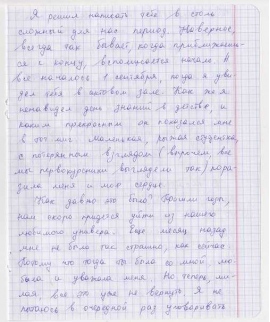 Я решил написать тебе в столь
сложный для нас период. Наверное,
всегда так бывает, когда приближаешь-
ся к концу, вспоминается начало. А
все началось 1 сентября, когда я уви-
дел тебя в актовом зале. Как же я
ненавидел день знаний в детстве и
каким прекрасным он показался мне
в тот миг. Маленькая, рыжая студентка,
с потерянным взглядом (впрочем, все
мы первокурсники выглядели так) пора-
зила меня и мое сердце.
Как давно это было? Прошли годы,
нам скоро придется уйти из нашего
любимого универа. Еще месяц назад
мне не было так страшно, как сейчас.
Потому что тогда ты была со мной, лю-
била и уважала меня. Но теперь, ми-
лая, все это уже не вернуть. Я не
пытаюсь в очередной раз уговаривать